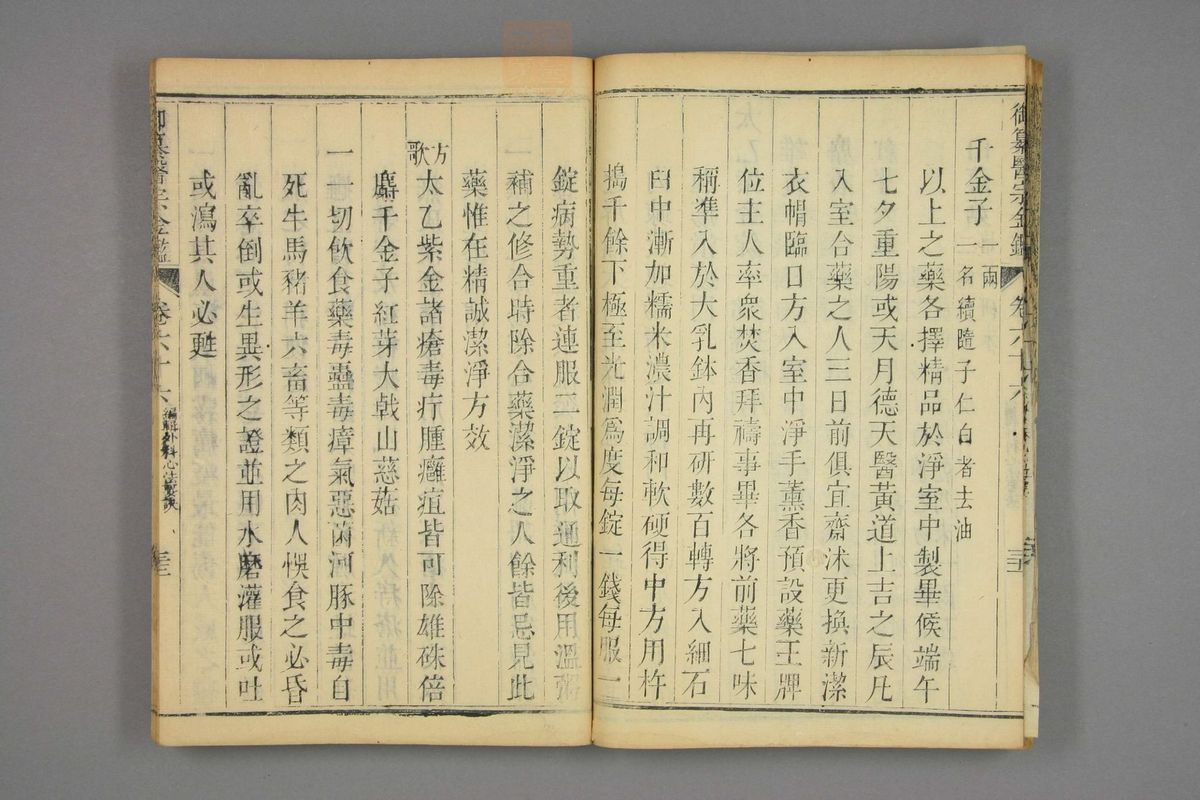 御纂醫宗金鑑 卷六十六
千金子一兩一名續隨子仁白者去油
以上之藥各擇精品於淨室中製畢候端午
七夕重陽或天月德天醫黃道上吉之辰凡
入室合藥之人三日前俱宜齋沐更換新潔
衣帽臨日方入室中淨手薰香預設藥王牌
位主人率衆焚香拜禱事畢各將前藥七味
稱準入於大乳鉢內再研數百轉方入細石
臼中漸加糯米濃汁調和軟硬得中方用杵
搗千餘下極至光潤爲度每錠一錢每服一
錠病勢重者連服二錠以取通利後用溫粥
補之修合時除合藥潔淨之人餘皆忌見此
藥惟在精誠潔淨方效
方歌 太乙紫金諸瘡毒疔腫癰疽皆可除雄硃倍
麝千金子紅芽大戟山慈菇
一一切飮食藥毒蠱毒瘴氣惡菌河豚中毒自
死牛馬豬羊六畜等類之肉人悞食之必昏
亂卒倒或生異形之證並用水磨灌服或吐
或瀉其人必甦
御纂醫宗金鑑 卷六十六 編輯外科心法要訣